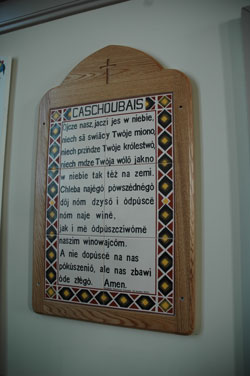 CASCHOUBAIS
Òjcze nasz, jaczi jes w niebie,
niech sã swiãcy Twóje miono,
niech przińdze Twóje królestwò,
niech mdze Twòja wòlô jakno
w niebie tak téż na zemi.
Chleba najégò pòwszédnégò
dôj nóm dzysô i òdpùscë
nóm naje winë,
jak i më òdpùszcziwómë
naszim winowajcóm.
A nie dopùscë na nas
pòkùszeniô, ale nas zbawi
òde złégò. Amen.